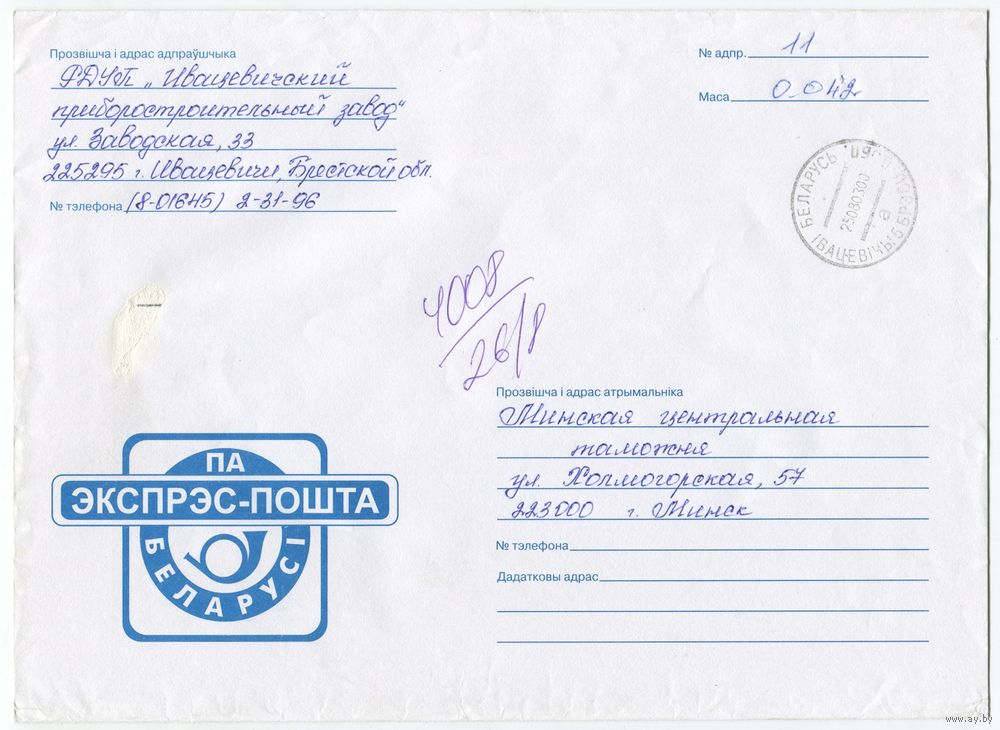 Прозвішча і адрас адпраўшчыка
РДУП „Ивацевичский
приборостроительный завод"
ул. Заводская, 33
225295 г. Ивацевичи, Брестской обл.
№ тэлефона (8-01645) 2-31-96
№ адпр. 11
Маса 0.042
БЕЛАРУСЬ
25080300
а
ІВАЦЕВІЧЫ
4008
26/8
Прозвішча і адрас атрымальніка
Минская центральная
таможня
ул. Холмогорская, 57
223000 г. Минск
№ тэлефона
Дадатковы адрас
ПА
ЭКСПРЭС-ПОШТА
БЕЛАРУСІ
www.ay.by